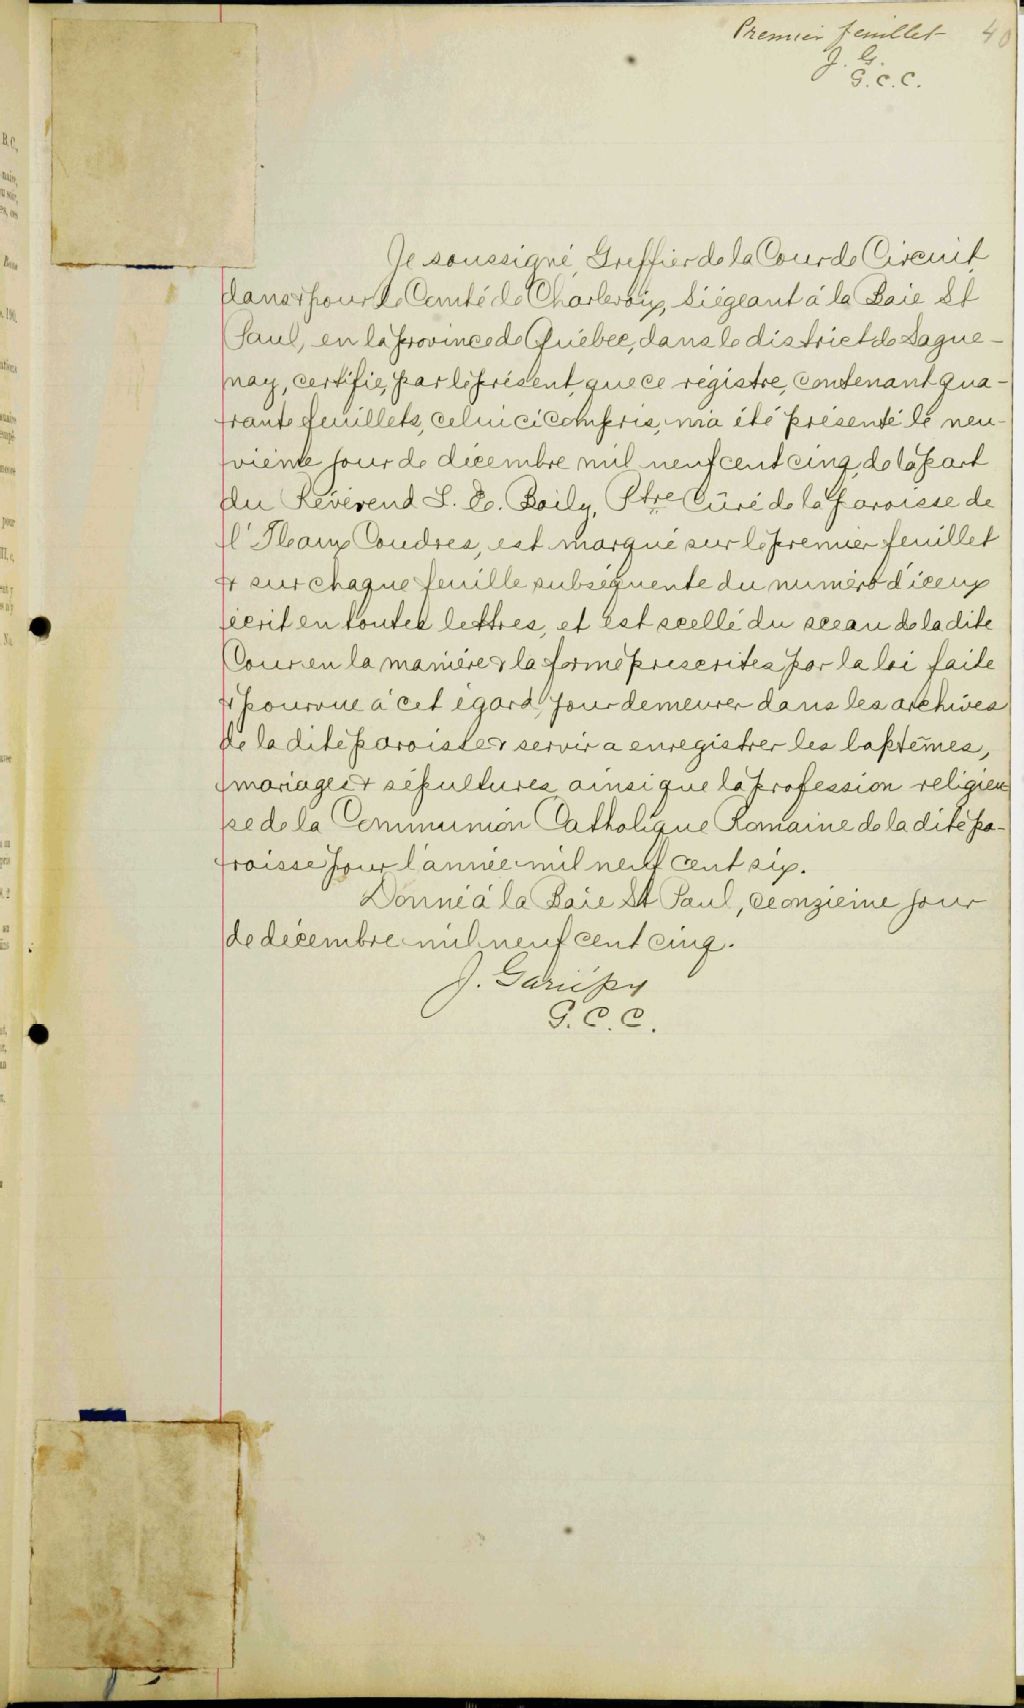 Premier feuillet 40
J. G.
G. C. C.
Je soussigné, Greffier de la Cour de Circuit
dans & pour le Comté de Charlevoix, siégeant à la Baie St
Paul, en la province de Québec, dans le district de Sague-
nay, certifie, par le présent, que ce régistre, contenant qua-
rante feuillets, celui ci compris, m'a été présenté le neu-
vième jour de décembre mil neuf cent cinq, de la part
du Révérend L. E. Boily, Ptre Curé de la paroisse de
l'Ile aux Coudres, est marqué sur le premier feuillet
& sur chaque feuille subséquente du numéro d'iceux
écrit en toutes lettres, et est scellé du sceau de la dite
Cour en la manière & la forme prescrites par la loi faite
& pourvue à cet égard, pour demeurer dans les archives
de la dite paroisse & servir a enregistrer les baptêmes,
mariages & sépultures, ainsi que la profession religieu-
se de la Communion Catholique Romaine de la dite pa-
roisse pour l'année mil neuf cent six.
Donné à la Baie St Paul, ce onzième jour
de décembre mil neuf cent cinq.
J. Gariépy
G. C. C.